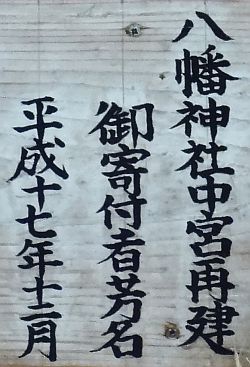 八幡神社中宮再建
御寄付者芳名
平成十七年十二月